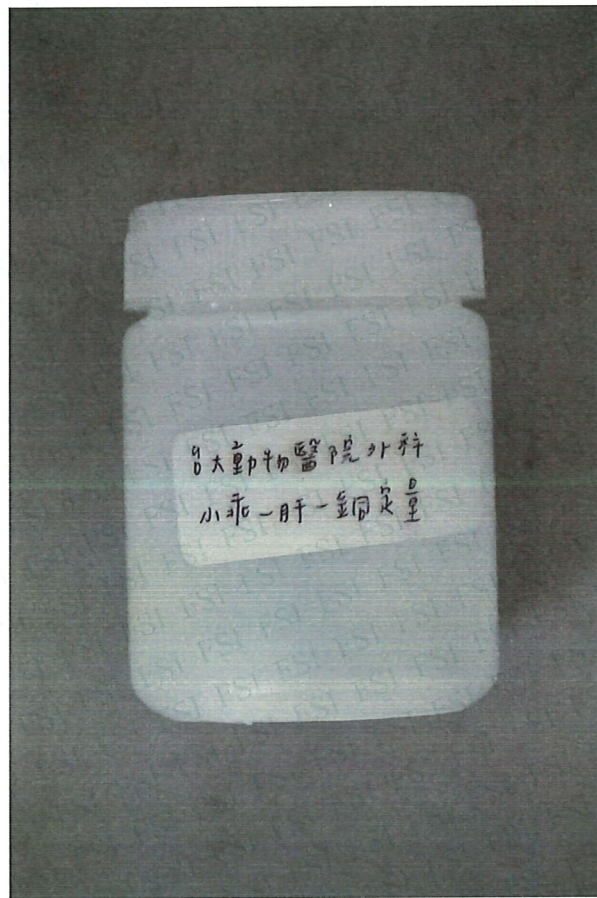 台大動物醫院外科
小乖-肝-銅定量